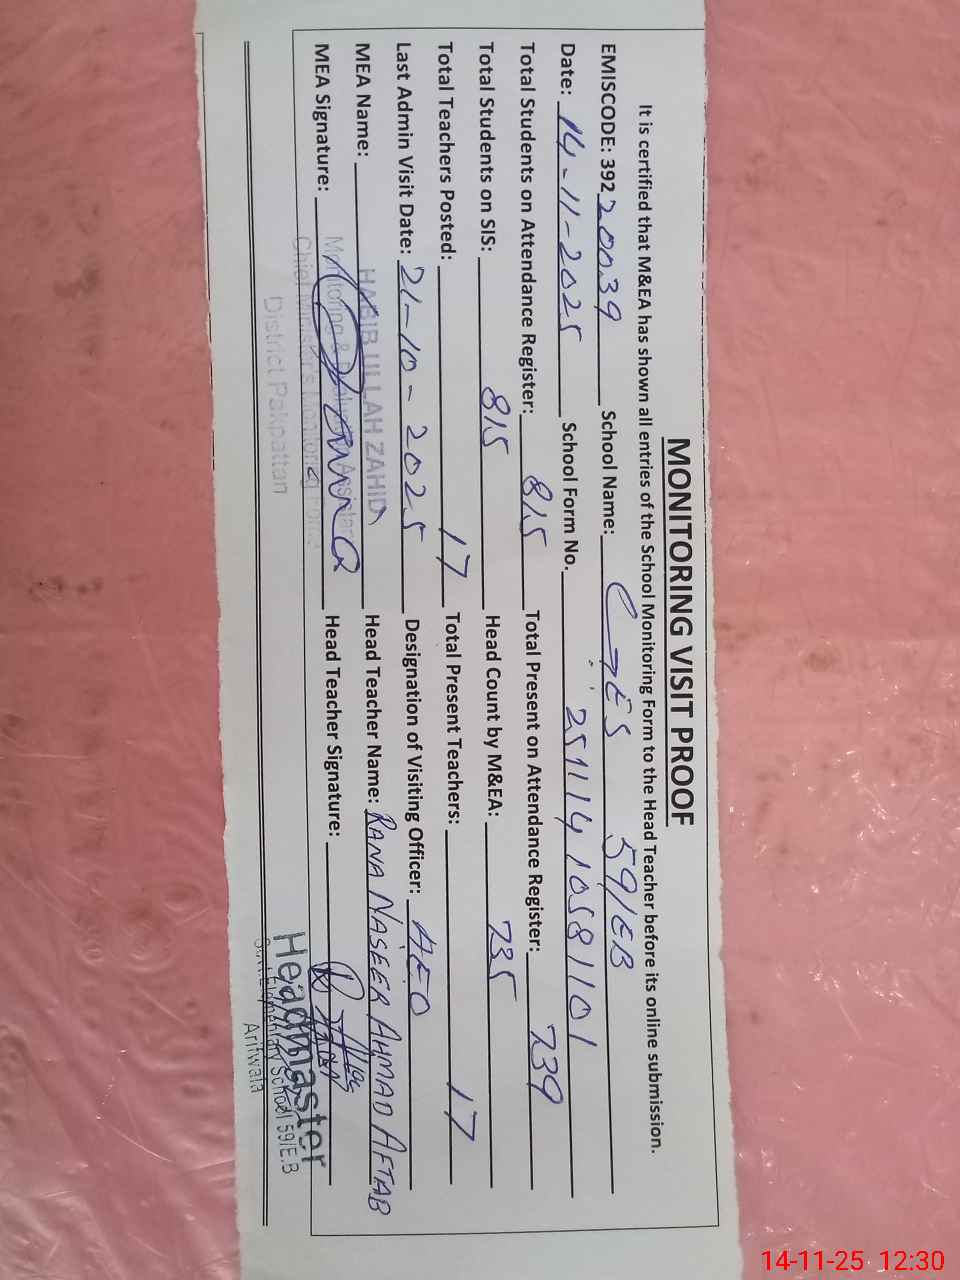 MONITORING VISIT PROOF
It is certified that M&EA has shown all entries of the School Monitoring Form to the Head Teacher before its online submission.
EMISCODE: 392 20039 School Name: GES 59/EB
Date: 14-11-2025 School Form No. 251114 1058 1101
Total Students on Attendance Register: 815 Total Present on Attendance Register: 739
Total Students on SIS: 815 Head Count by M&EA: 735
Total Teachers Posted: 17 Total Present Teachers: 17
Last Admin Visit Date: 21-10-2025 Designation of Visiting Officer: AEO
MEA Name: HABIB ULLAH ZAHID Head Teacher Name: RANA NASEER AHMAD AFTAB
MEA Signature: Monitoring & Evaluation Assistant Head Teacher Signature:
Chief Minister's Monitoring Force
District Pakpattan
Headmaster
Govt. Elementary School 59/E.B
Arifwala
14-11-25 12:30